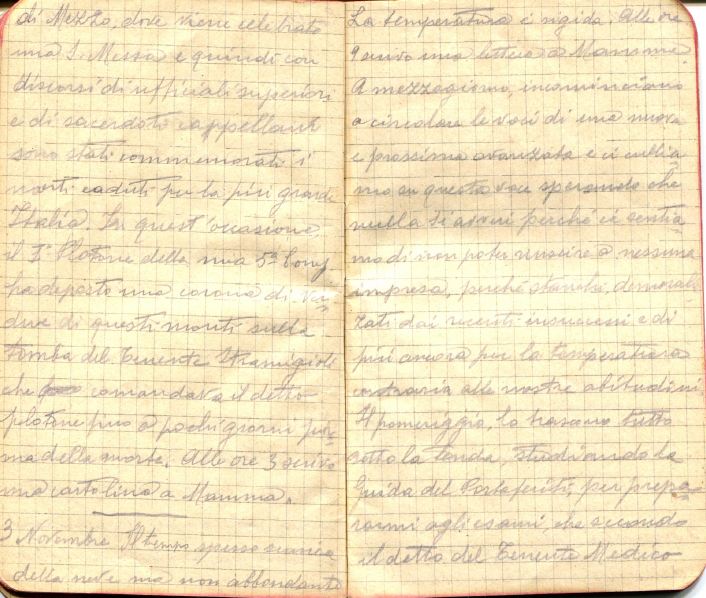 di Mezzo, dove viene celebrata
una S. Messa e quindi con
discorsi di ufficiali superiori
e di sacerdoti cappellani
sono stati commemorati i
morti caduti per la più grande
Italia. In quest'occasione,
il 1° Plotone della mia 5ª Comp.
ha deposto una corona di ver
dure di questi monti sulla
tomba del Tenente Stramigioli
che comandava il detto
plotone fino a pochi giorni pri
ma della morte. Alle ore 3 scrivo
una cartolina a Mamma.
3 Novembre Il tempo spesso scarica
della neve ma non abbondante
La temperatura è rigida. Alle ore
9 scrivo una lettera a Mamma.
A mezzogiorno, incominciano
a circolare le voci di una nuova
e prossima avanzata e ci
mo su questa voce sperando che
nulla si avveri perché ci sentia
mo di non poter riuscire a nessuna
impresa, perché stanchi, demorali
zzati dai recenti insuccessi e di
più ancora per la temperatura
contraria alle nostre abitudini.
Il pomeriggio, lo trascorro tutto
sotto la tenda, studiando la
Guida del Portaferiti, per prepa
rarmi agli esami, che secondo
il detto del Tenente Medico